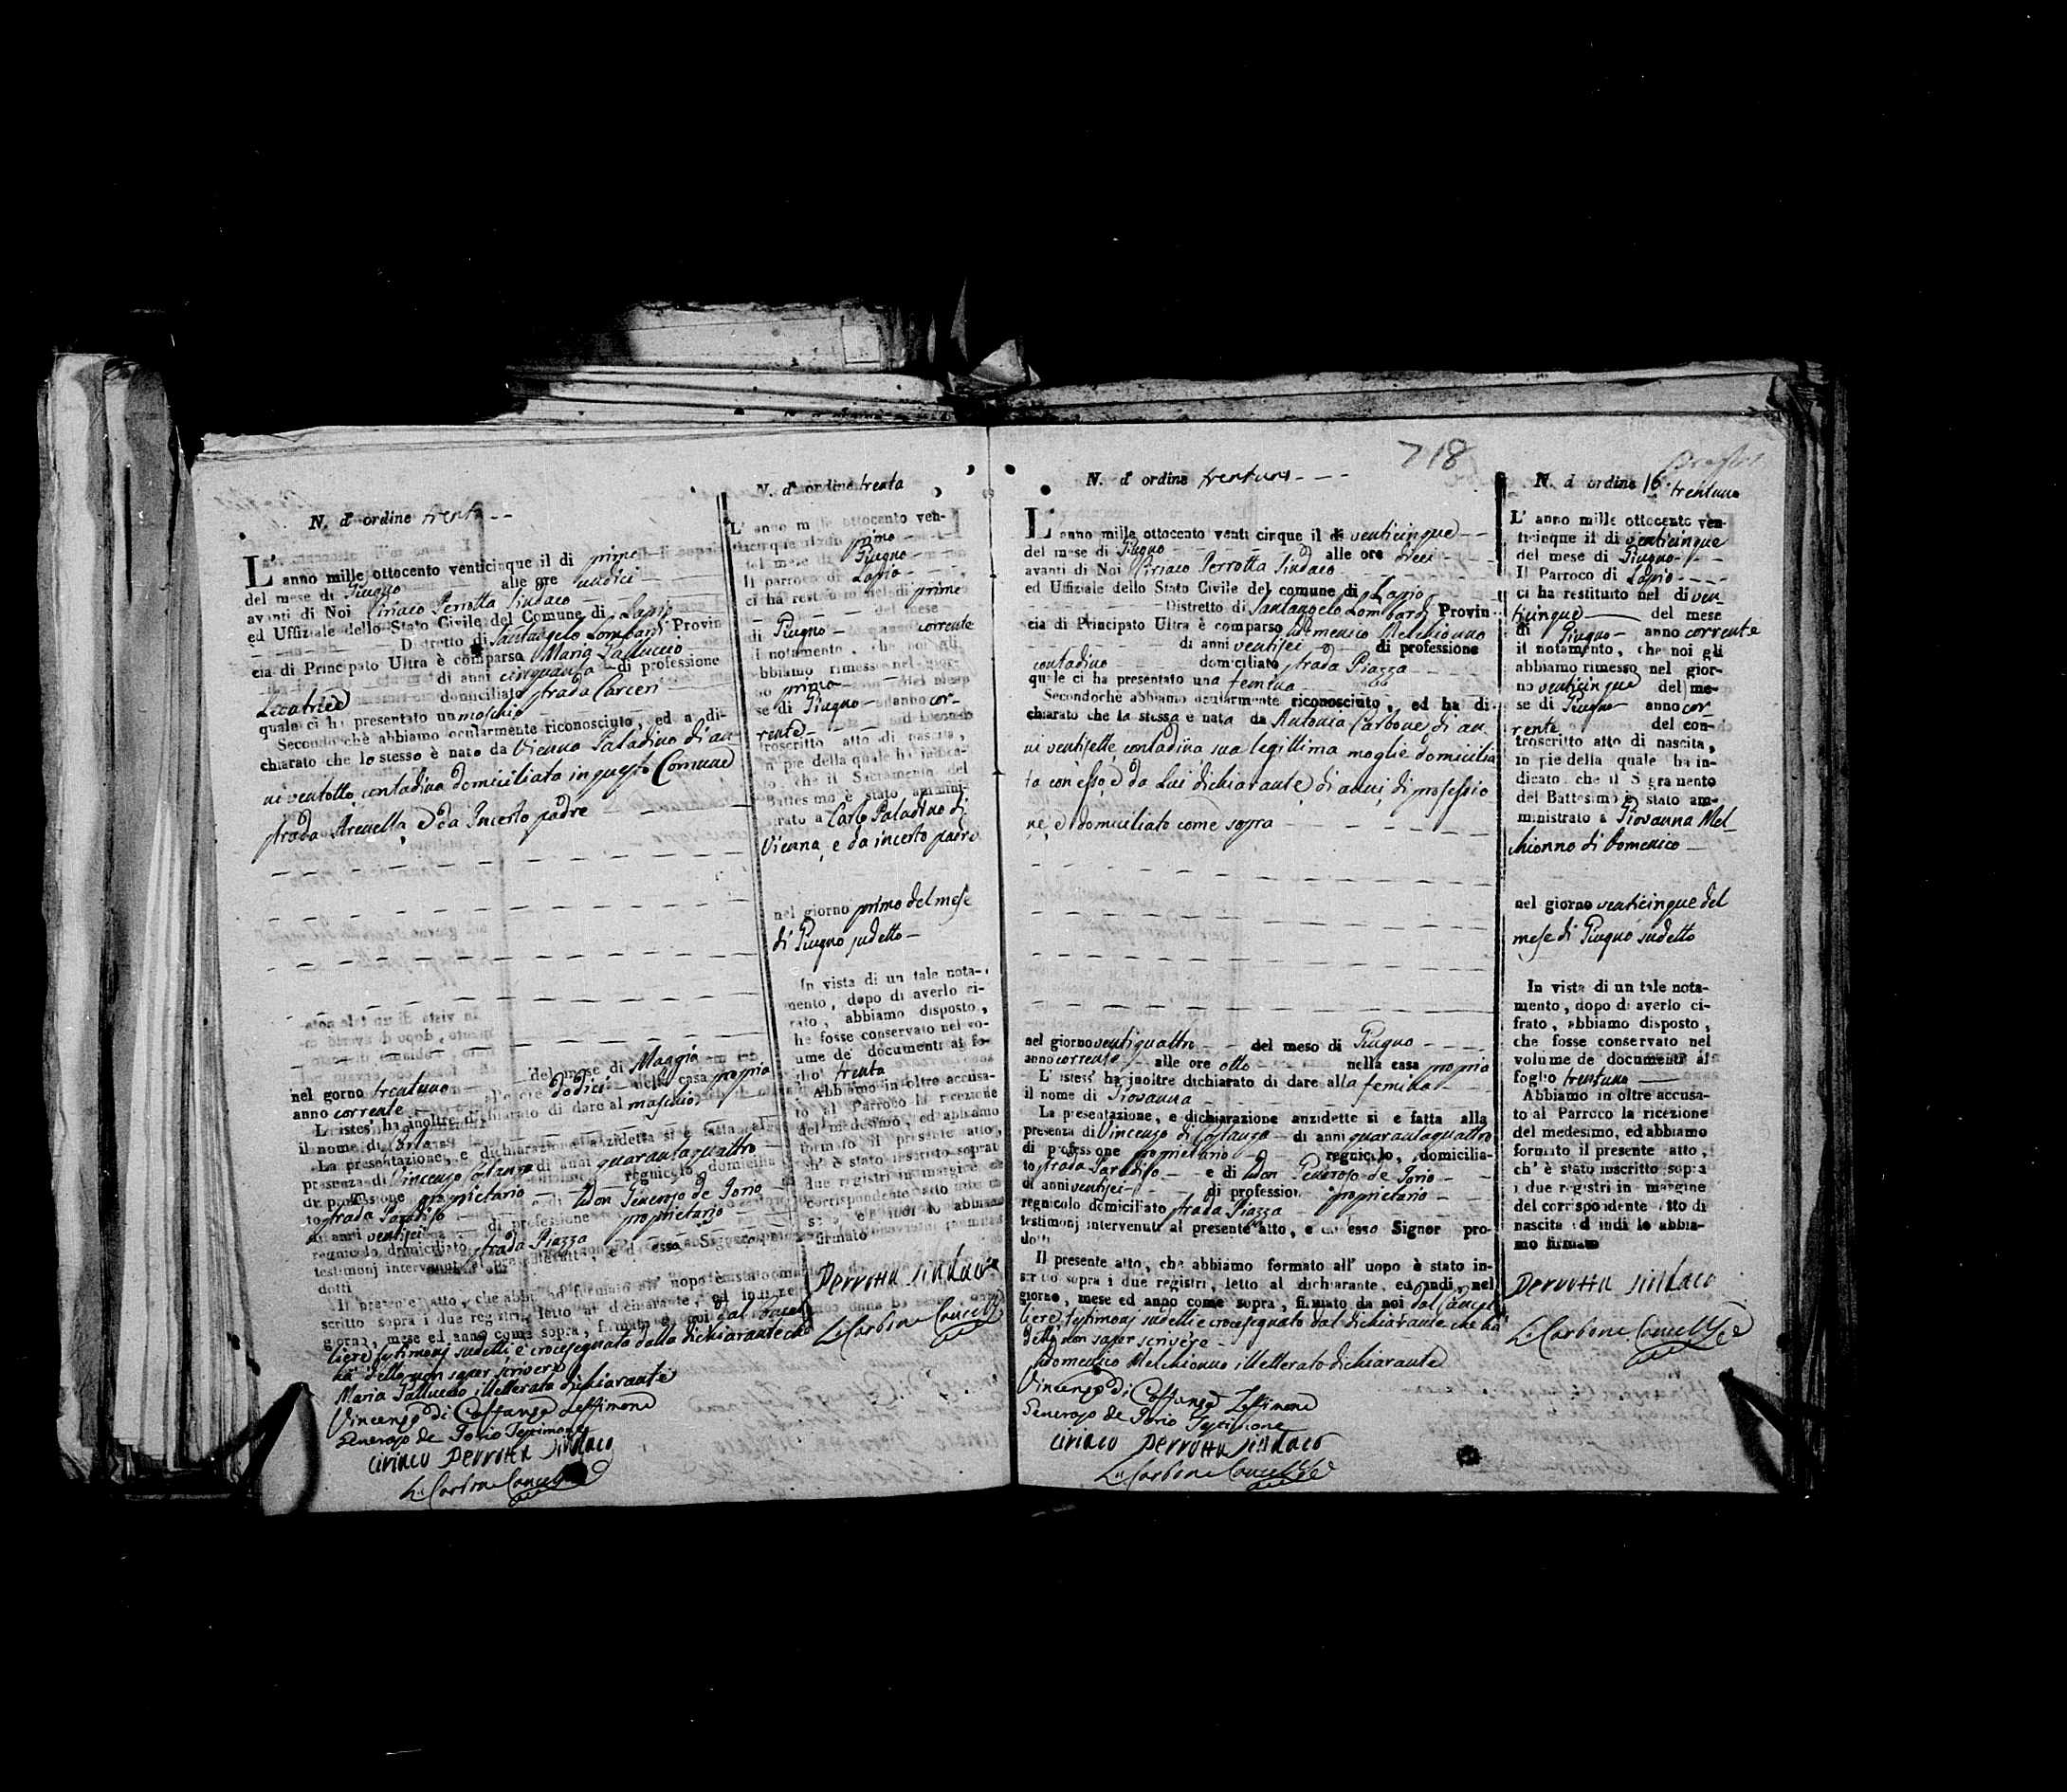 N. d' ordine trenta
L' anno mille ottocento venticinque il di primo
del mese di Giugno alle ore undici
avanti di Noi Ciriaco Perrotta Sindaco
ed Uffiziale dello Stato Civile del Comune di Lapio
Distretto di Santangelo Lombardi Provin
cia di Principato Ultra è comparsa Maria Galluccio
di anni cinquanta di professione
domiciliata strada Carceri
quale ci ha presentato un maschio
Secondo chè abbiamo ocularmente riconosciuto, ed a di-
chiarato che lo stesso è nato da Vienna Paladino di an-
ni ventotto contadina domiciliata in questo Comune
strada Arenella, e da Incerto padre
nel gorno trentuno del mese di Maggio
anno corrente alle ore dodici nella casa propria
L' istes' ha inoltre dichiarato di dare al maschio
il nome di Carlo
La presentazione, e dichiarazione anzidetta si è fatta al
presenza di Vincenzo di Costanzo di anni quarantaquattro
di professione proprietario regnicolo, domicilia
to strada Paradiso e di Don Generoso de Iorio
di anni ventisei di professione proprietario
regnicolo domiciliato strada Piazza
testimonj intervenuti al presente atto, e d' esso Signor pro
dotti
Il presente atto, che abbiamo formato all' uopo è stato in
scritto sopra i due registri, letto al dichiarante, ed indi nel
giorno, mese ed anno come sopra, firmato da noi dal Cancel
liere, testimonj sudetti, e crocesegnato dalla dichiarante che
ha detto non saper scrivere
Maria Galluccio illetterata dichiarante
Vincenzo di Costanzo Testimone
Generoso de Iorio Testimone
Ciriaco Perrotta Sindaco
Carbone Cancelliere
N. d' ordine trenta
L' anno mille ottocento ven-
ticinque il di primo
del mese di Giugno
Il parroco di Lapio
ci ha restituito nel di primo
del mese
di Giugno corrente
il notamento, che noi gli
abbiamo rimesso nel gior-
no primo del me-
se di Giugno anno cor-
rente
troscritto atto di nascita,
in piè della quale ha indica-
to, che il Sacramento del
Battesimo è stato ammini-
strato a Carlo Paladino di
Vienna, e da incerto padre
nel giorno primo del mese
di Giugno sudetto
In vista di un tale nota-
mento, dopo di averlo ci-
frato, abbiamo disposto,
che fosse conservato nel vo-
lume de' documenti al fo-
glio trenta
Abbiamo in oltre accusa-
to al Parroco la ricezione
del medesimo, ed abbiamo
formato il presente atto,
ch' è stato inscritto sopra i
due registri in margine del
corrispondente atto di
firmato
Perrotta Sindaco
Carbone Cancelliere
718
N. d' ordine trentuno
L' anno mille ottocento venti cinque il di venticinque
del mese di Giugno alle ore dieci
avanti di Noi Ciriaco Perrotta Sindaco
ed Uffiziale dello Stato Civile del comune di Lapio
Distretto di Santangelo Lombardi Provin
cia di Principato Ultra è comparso Domenico Melchionno
di anni ventisei di professione
contadino domiciliato strada Piazza
quale ci ha presentato una femina
Secondochè abbiamo ocularmente riconosciuto, ed ha di-
chiarato che la stessa è nata da Antonia Carbone di an-
ni ventisette contadina sua legittima moglie domicilia
ta con esso, e da Lui dichiarante, di anni, di professio
ne, e domiciliato come sopra
nel giorno ventiquattro del meso di Giugno
anno corrente alle ore otto nella casa propria
L' istess' ha inoltre dichiarato di dare alla femina
il nome di Giovanna
La presentazione, e dichiarazione anzidette si e fatta alla
presenza di Vincenzo di Costanzo di anni quarantaquattro
di professione proprietario regnicolo, domicilia-
to strada Paradiso e di Don Generoso de Iorio
di anni ventisei di profession proprietario
regnicolo domiciliato strada Piazza
testimonj intervenuti al presente atto, e da esso Signor pro-
dotti
Il presente atto, che abbiamo formato all' uopo è stato in-
scritto sopra i due registri, letto al dichiarante, ed indi, nel
giorno, mese ed anno come sopra, firmato da noi dal Cancel
liere, testimonj sudetti e crocesegnato dal dichiarante che ha
detto non saper scrivere
Domenico Melchionno illetterato dichiarante
Vincenzo di Costanzo Testimone
Generoso de Iorio Testimone
Ciriaco Perrotta Sindaco
Carbone Cancelliere
N. d' ordine 16 trentuno
L' anno mille ottocento ven-
ticinque il di venticinque
del mese di Giugno
Il Parroco di Lapio
ci ha restituito nel di ven-
ticinque del mese
di Giugno anno corrente
il notamento, che noi gli
abbiamo rimesso nel gior-
no venticinque del me-
se di Giugno anno cor-
rente del con-
troscritto atto di nascita,
in pie della quale ha in-
dicato che il Sagramento
del Battesimo è stato am-
ministrato a Giovanna Mel-
chionno di Domenico
nel giorno venticinque del
mese di Giugno sudetto
In vista di un tale nota-
mento, dopo di averlo ci-
frato, abbiamo disposto,
che fosse conservato nel
volume de' documenti al
foglio trentuno
Abbiamo in oltre accusa-
to al Parroco la ricezione
del medesimo, ed abbiamo
formato il presente atto,
ch' è stato inscritto sopra
i due registri in margine
del corrispondente atto di
nascita ed indi lo abbia-
mo firmato
Perrotta Sindaco
Carbone Cancelliere